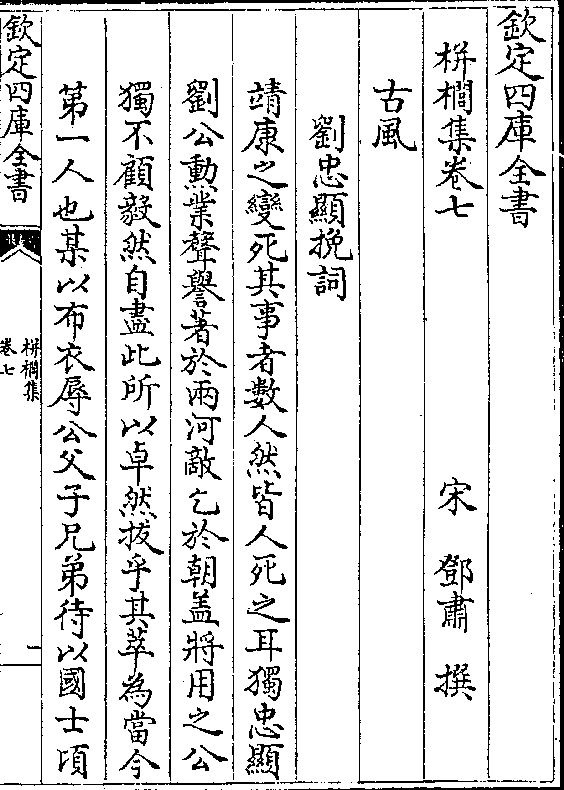 欽定四庫全書
栟櫚集卷七
宋 鄧肅 撰
古風
劉忠顯挽詞
靖康之變死其事者數人然皆人死之耳獨忠顯
劉公勲業聲譽著於兩河敵乞於朝盖將用之公
獨不顧毅然自盡此所以卓然拔乎其萃為當今
第一人也某以布衣辱公父子兄弟待以國士頃
欽定四庫全書
栟櫚集
卷七
一